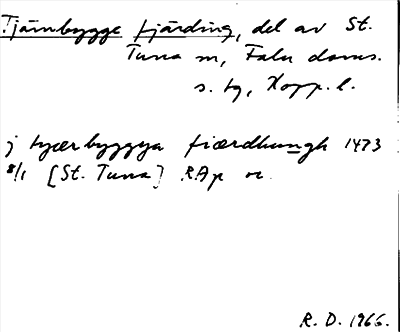 Tjärnbygge fjärding, del av St.
Tuna sn, Falu doms.
s. tg, Kopp. l.
j tyærbyggya fiærdhungh 1473
8/1 [St. Tuna] RAp or.
R. D. 1966.